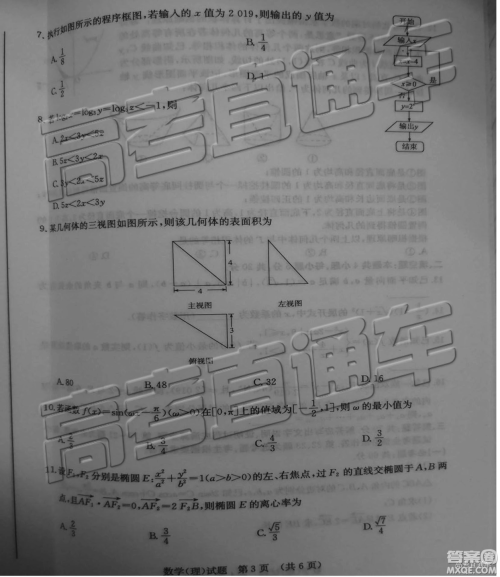 7.执行如图所示的程序框图,若输入的x值为2 019,则输出的y值为
A. 1/8
B. 1/4
C. 1/2
D. 1
开始
输入x
x≥0
是
输出y
结束
A.2x<3y<5z
B.5z<3y<2x
C.3y<2x<5z
D.5z<2x<3y
9.某几何体的三视图如图所示,则该几何体的表面积为
4
4
主视图
左视图
3
俯视图
A.80
B.48
C.32
D.16
10.若函数f(x)=sin(ωx-π/6)(ω>0)在[0,π]上的值域为[-1/2,1],则ω的最小值为
C. 4/3
D. 3/2
11.设F₁,F₂分别是椭圆E:x²/a²+y²/b²=1(a>b>0)的左、右焦点,过F₂的直线交椭圆于A,B两
点,且AF₁·AF₂=0,AF₂=2F₂B,则椭圆E的离心率为
A. 2/3
B. 3/4
C. √5/3
D. √7/4
数学(理)试题 第3页 (共6页)
高考直通车
高考直通车
高考直通车
答案圈
MXQE.COM